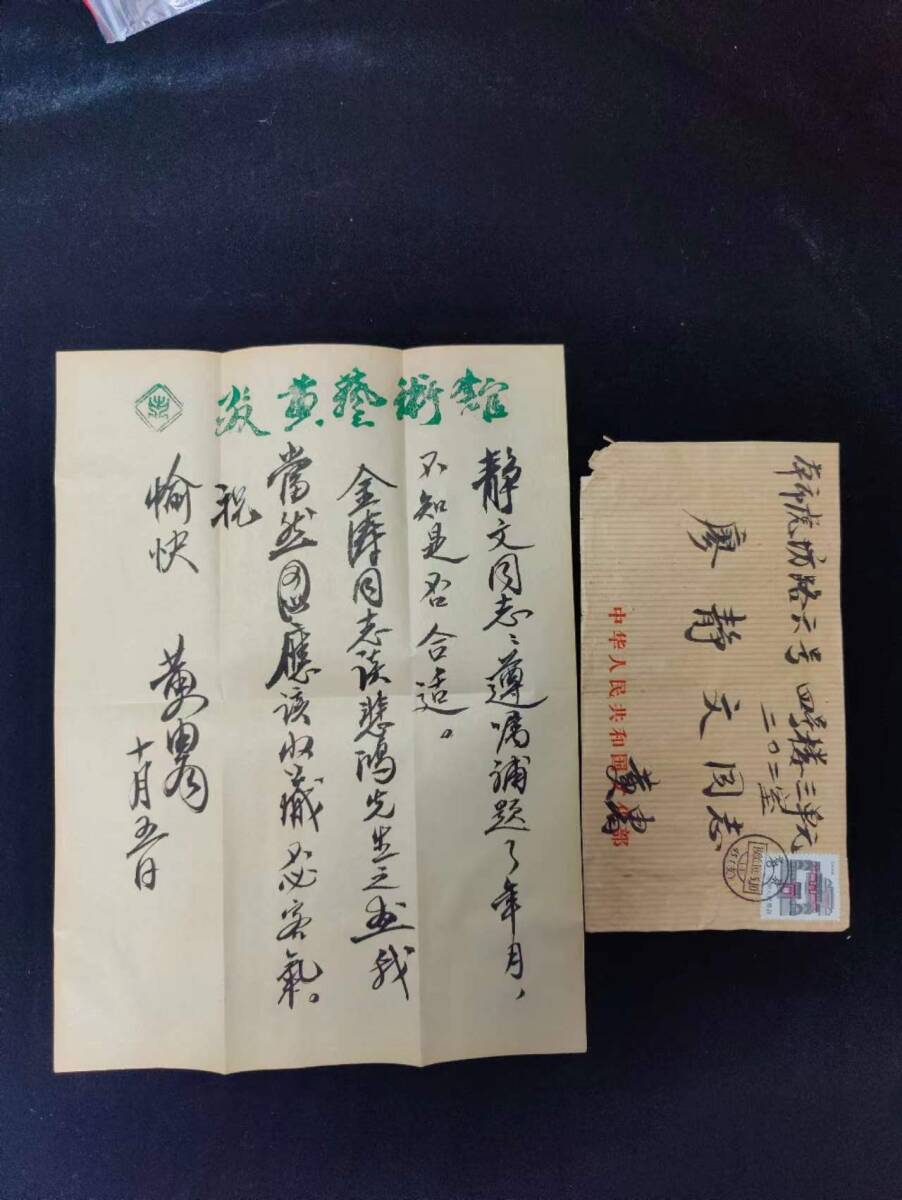 炎黄藝術館
静文同志：遵嘱補题了年月，
不知是否合适。
金涛同志谈悲鸿先生之画我
當然應該收藏不必客氣。
祝
愉快
黄胄
十月五日
本市虎坊路六号 四号楼三单元
二〇二室
廖静文同志
中华人民共和国文化部
黄胄